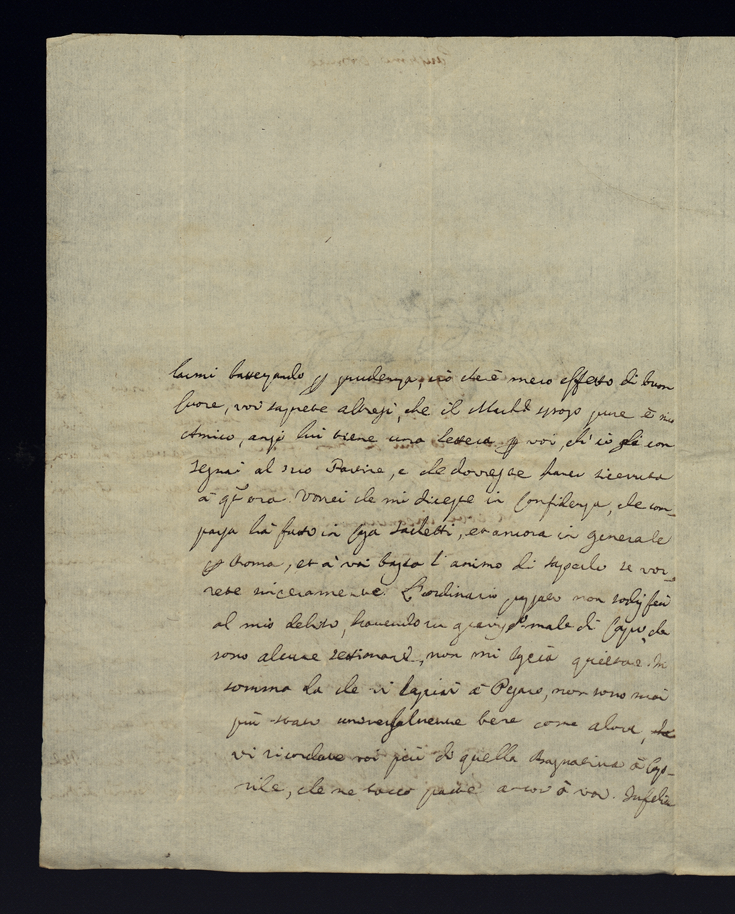 larmi battezando per prudenza, ciò che è mero effetto di buon
Cuore, voi saprete altresi, che il March. sposo pure è mio
Amico, anzi lui tiene una lettera per voi, ch'io gli con
segnai al suo Partire, e che dovreste haver ricevuta
à quest'ora. Vorrei che mi diceste in Confidenza, che com-
parsa hà fatto in Casa Sachetti, et ancora in generale
per Roma, et à voi basta l'animo di saperlo se vor-
rete sinceramente. L'ordinario passato non sodisfeci
al mio debito, havendo un gran male di Capo, da
sono alcune settimane, non mi lascia quietare. In
somma da che vi lasciai à Pesaro, non sono mai
più stato universalmente bene come alora,
vi ricordate voi più di quella Bagnatina à
rile, che ne toccò parte ancor à voi.